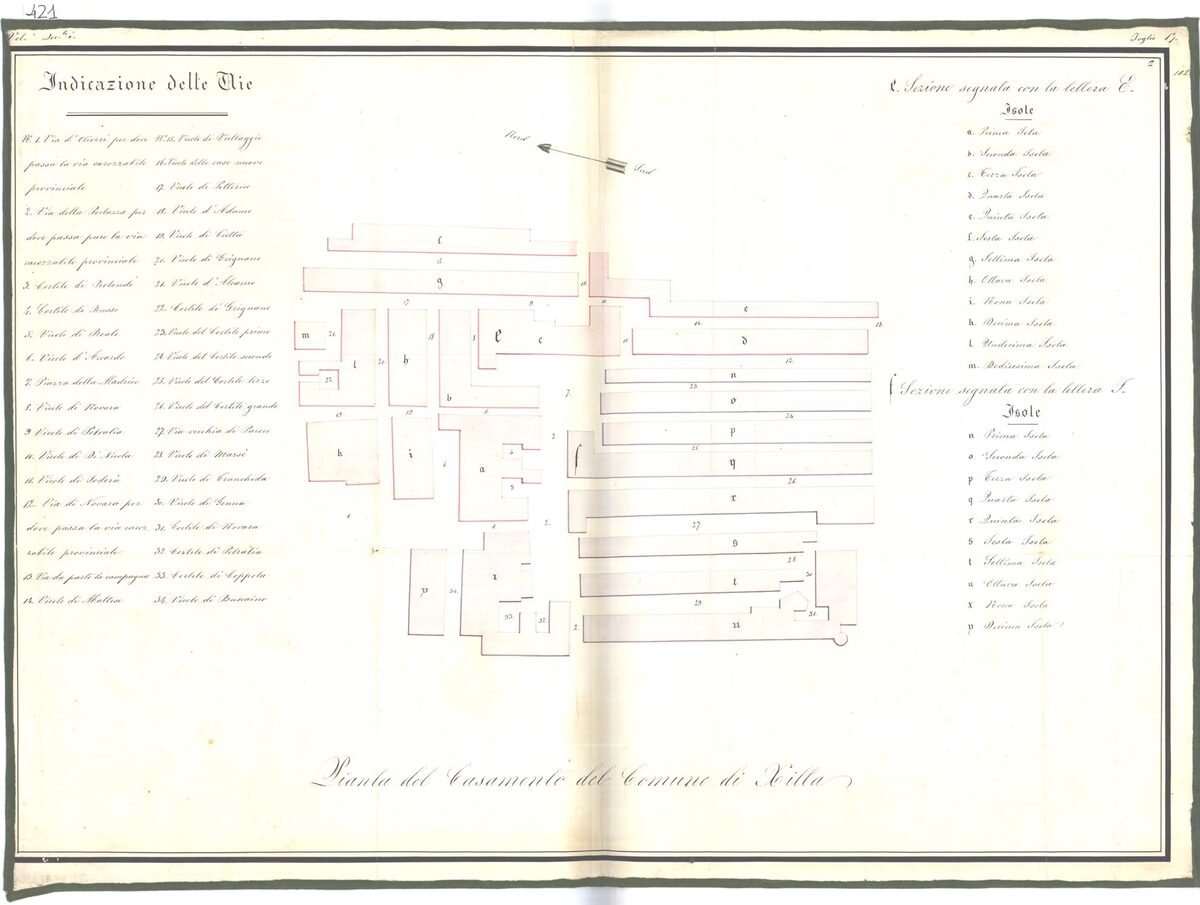 421
Foglio 17.
2
Indicazione delle Vie
N.º 1. Via d'Oliveri per dove
passa la via carozzabile
provinciale
2. Via della Portazza per
dove passa pure la via
carozzabile provinciale
3. Cortile di Rotondi
4. Cortile di Russo
5. Vicolo di Reale
6. Vicolo d'Accardo
7. Piazza della Madrice
8. Vicolo di Novara
9. Vicolo di Petralia
10. Vicolo di Di Nicola
11. Vicolo di Poderà
12. Via di Novara per
dove passa la via caroz
zabile provinciale
13. Via da parte la campagna
14. Vicolo di Maltese
N.º 15. Vicolo di Vultaggio
16. Vicolo delle case nuove
17. Vicolo di Pellerino
18. Vicolo d'Adamo
19. Vicolo di Cultà
20. Vicolo di Grignano
21. Vicolo d'Alcamo
22. Cortile di Grignano
23. Vicolo del Cortile primo
24. Vicolo del Cortile secondo
25. Vicolo del Cortile terzo
26. Vicolo del Cortile grande
27. Via vecchia di Paceco
28. Vicolo di Marsé
29. Vicolo di Tranchida
30. Vicolo di Genna
31. Cortile di Novara
32. Cortile di Petralia
33. Cortile di Coppola
34. Vicolo di Buscaino
Nord
Sud
e. Sezione segnata con la lettera E.
Isole
a. Prima Isola
b. Seconda Isola
c. Terza Isola
d. Quarta Isola
e. Quinta Isola
f. Sesta Isola
g. Settima Isola
h. Ottava Isola
i. Nona Isola
k. Decima Isola
l. Undecima Isola
m. Dodicesima Isola
f Sezione segnata con la lettera F.
Isole
n Prima Isola
o Seconda Isola
p Terza Isola
q Quarta Isola
r Quinta Isola
s Sesta Isola
t Settima Isola
u Ottava Isola
x Nona Isola
y Decima Isola
f
g
17.
9.
15.
e
14.
13.
m
21.
l
20.
h
18
8
e
c
d
12.
22.
b
7.
n
23.
o
19
19
24.
k
i
6
a
4.
3.
2
f
p
25
q
26.
r
1
1.
2.
27.
s
28.
y
34.
x
t
30
29.
33.
32.
2
u
31.
Pianta del Casamento del Comune di Xitta